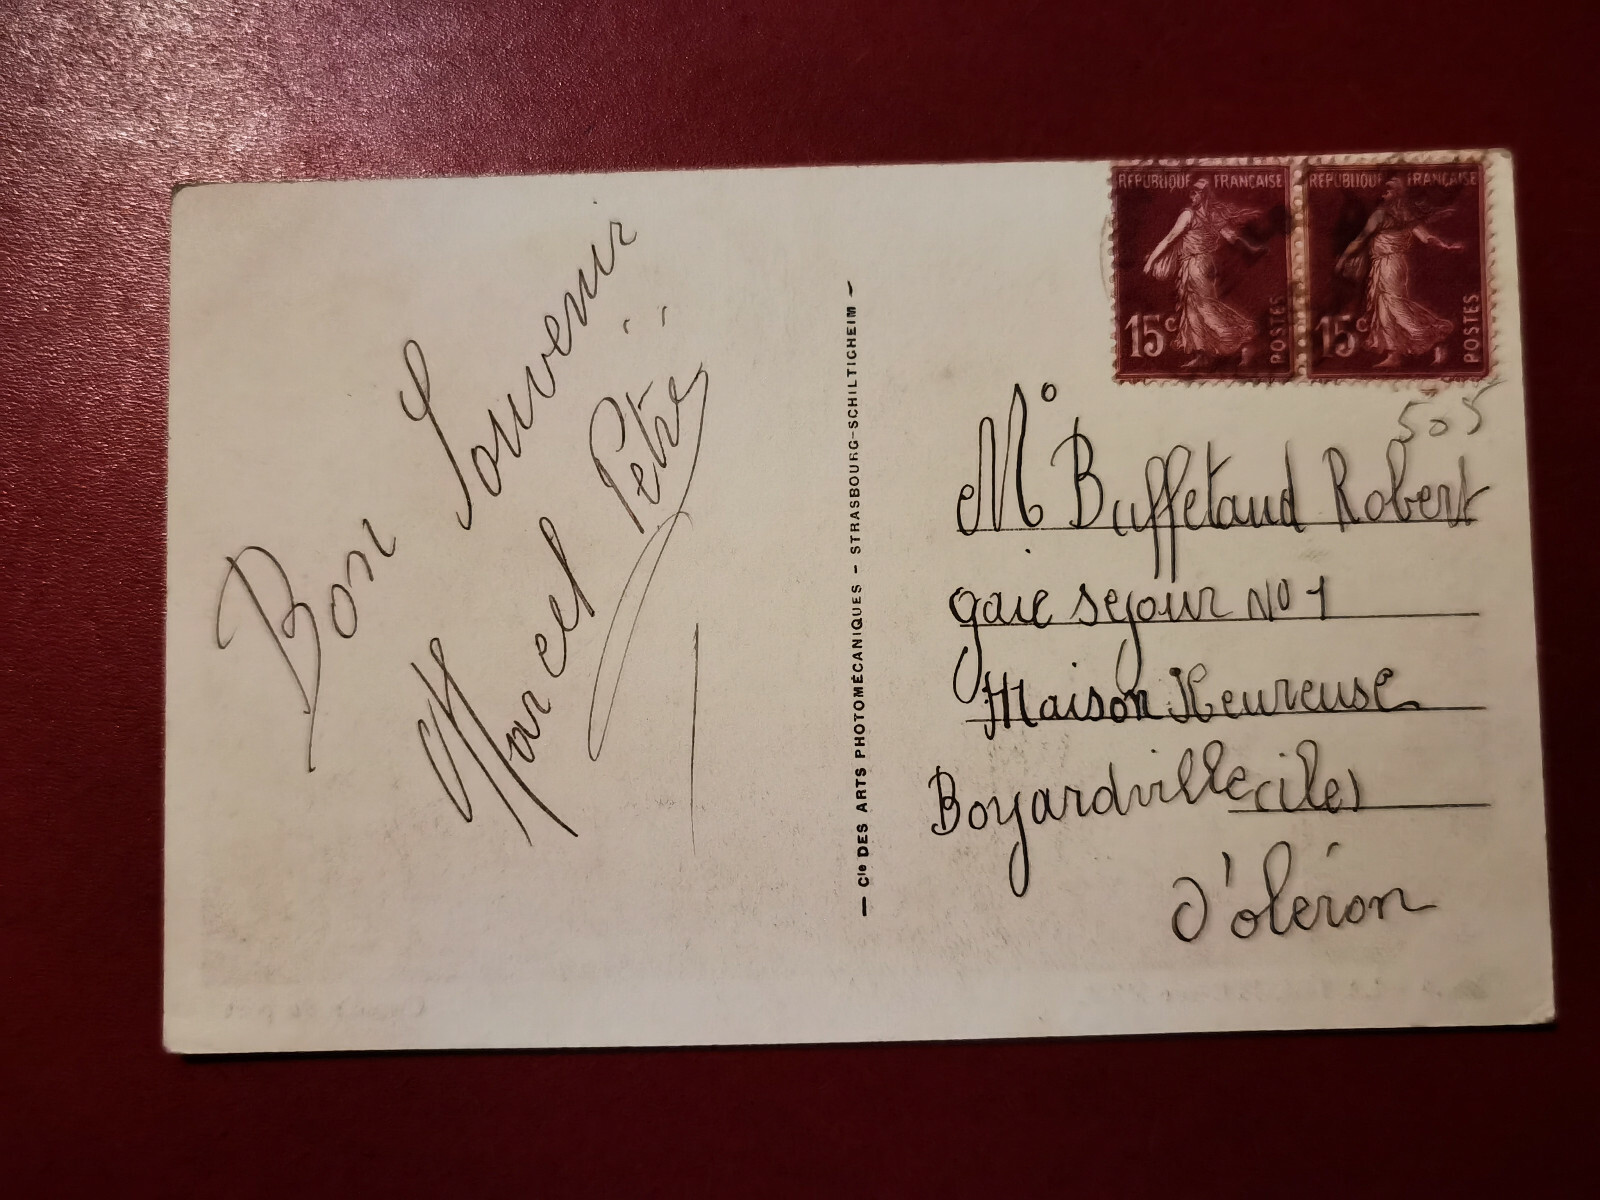 Bon Souvenir
Marcel Petre
— Cie DES ARTS PHOTOMÉCANIQUES – STRASBOURG-SCHILTIGHEIM –
RÉPUBLIQUE FRANÇAISE
15c
POSTES
RÉPUBLIQUE FRANÇAISE
15c
POSTES
505
Mo Buffetaud Robert
gaie sejour No 1
Maison Heureuse
Boyardville (ile)
d'oléron